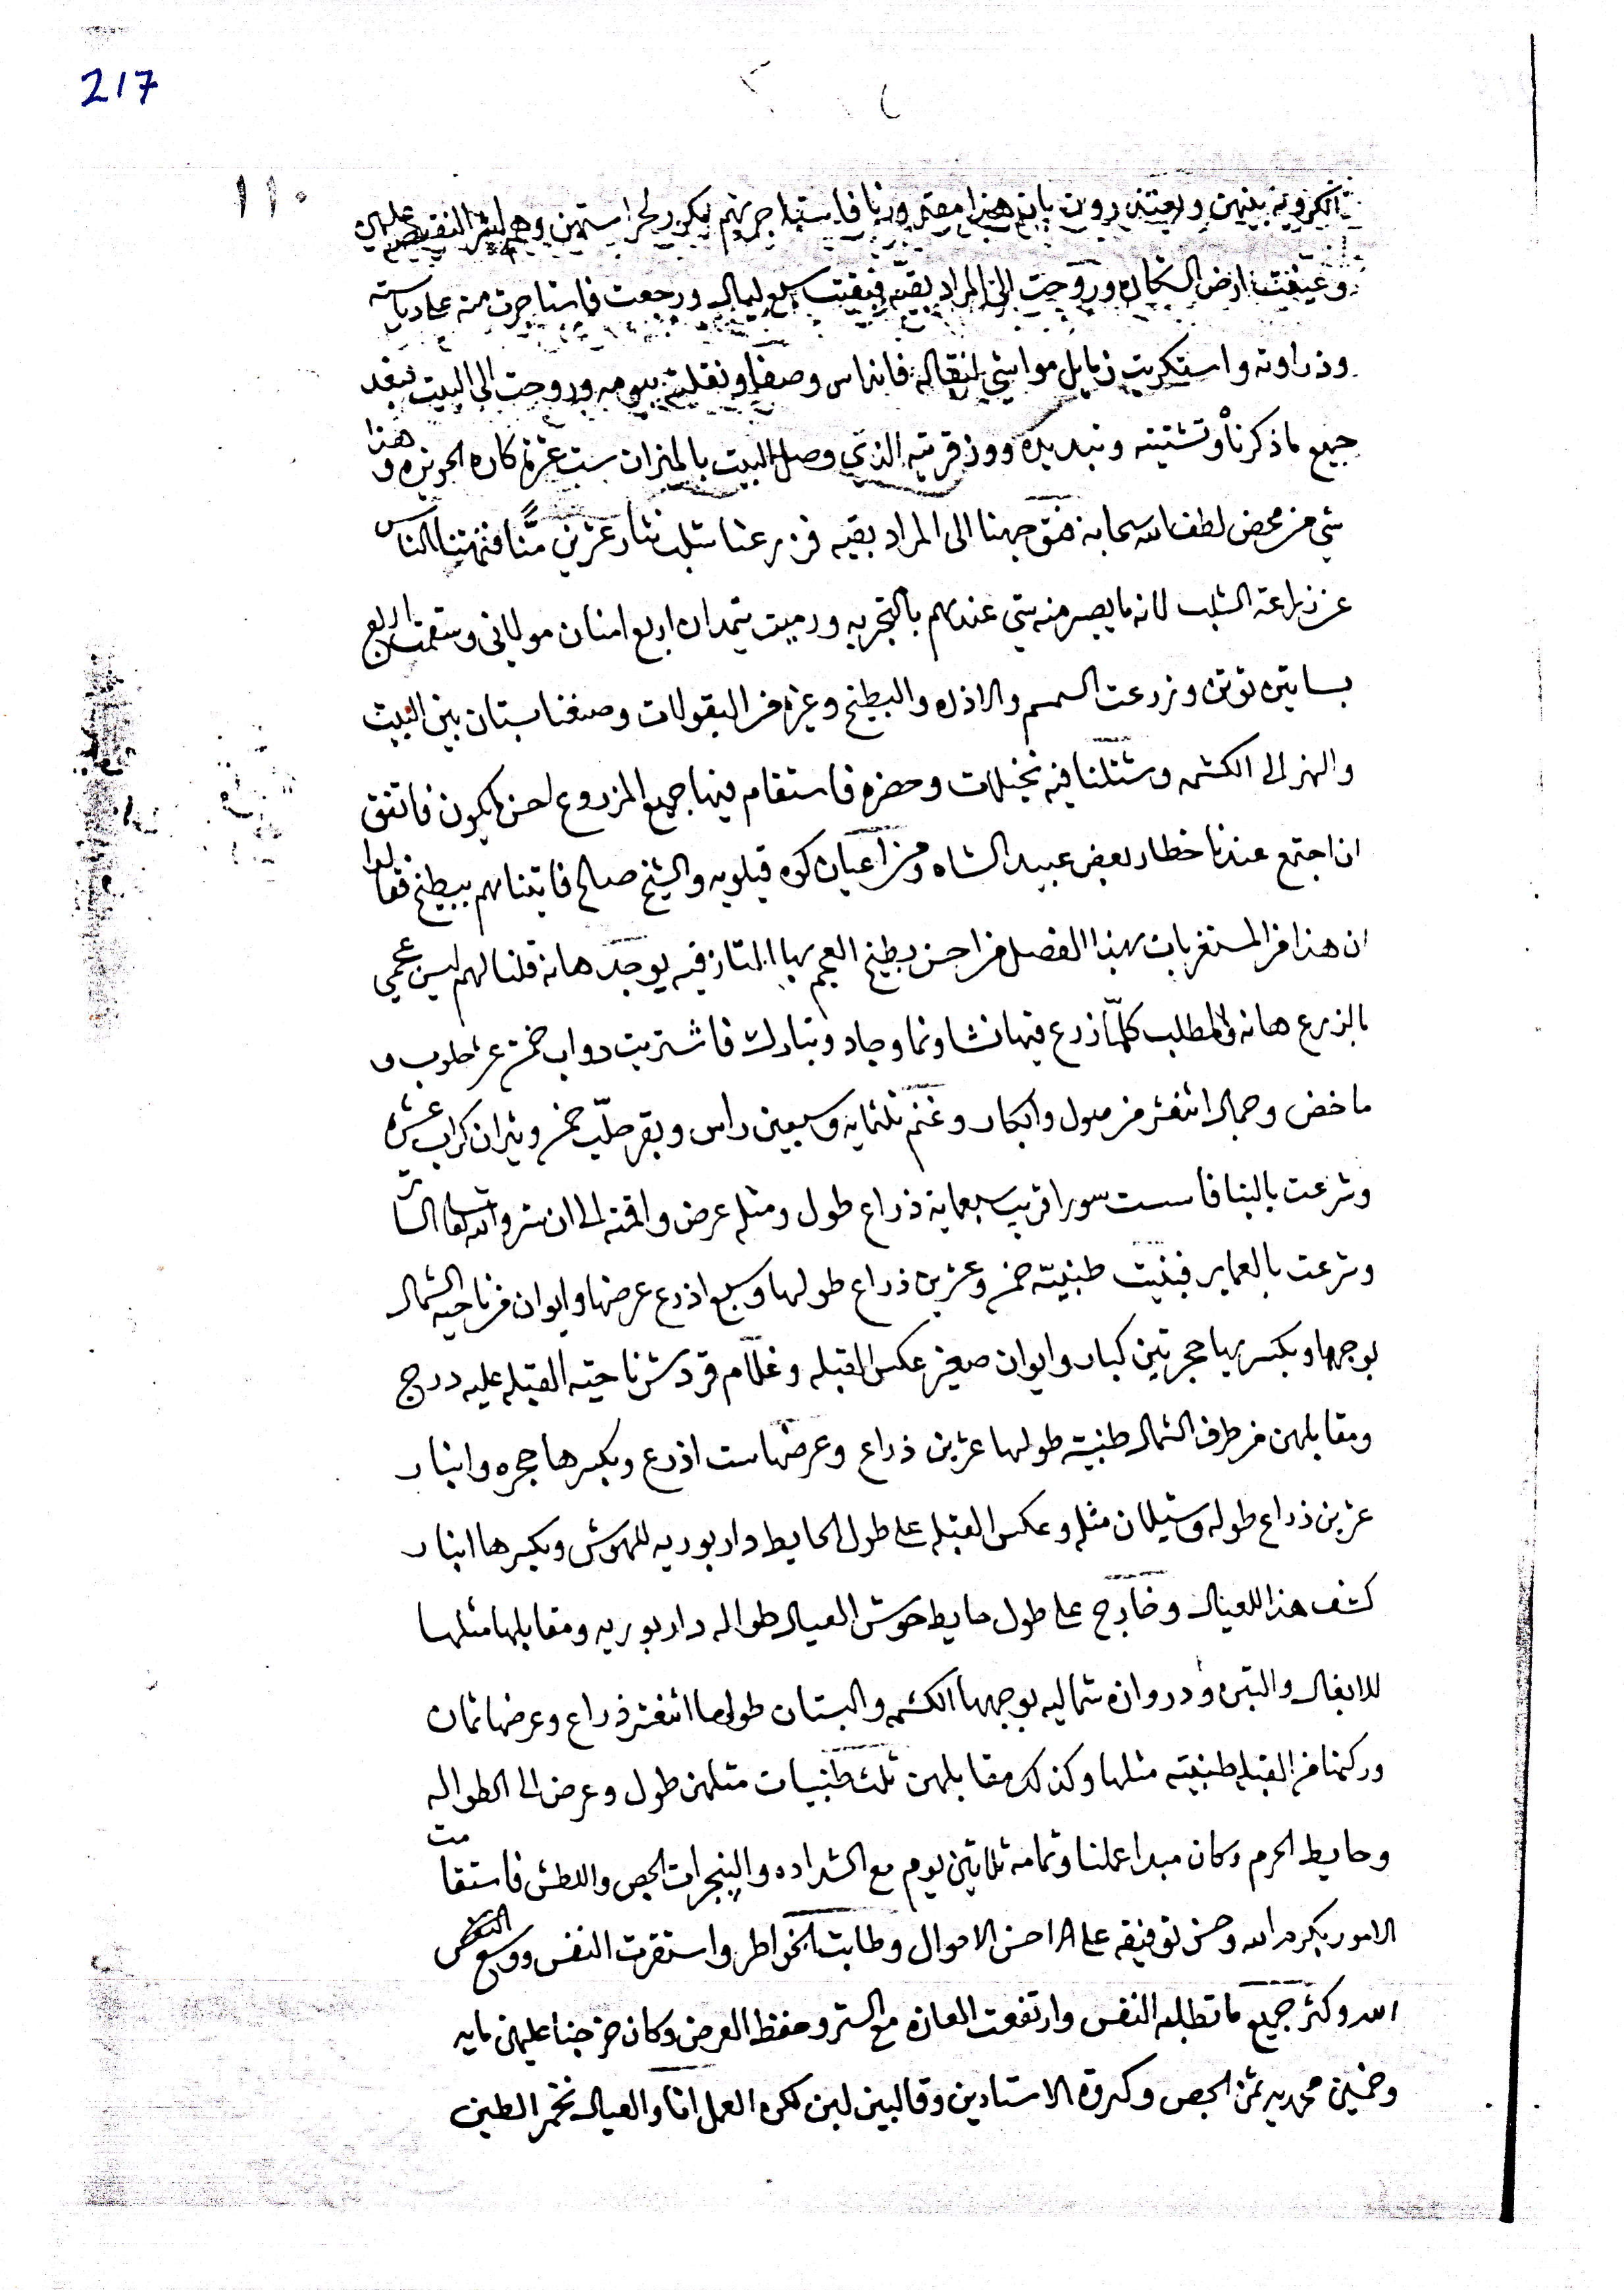 217
١١٠
بينهن ويعتذرون بان هذا مقدورنا فاستاجرتهم لحراستهن
وعيفت ارض الشكاره وروحت الى المراد بقيه فبقيت سبع ليال ورجعت فاستاجرت من على دياسته
وذراوته واستكريت زمايل مواشي لنقاله فانداس وصفا ونقلته بيومه وروحت الى البيت فبعد
جميع ما ذكرنا وتشتيته وتبديده ووزقريته الذي وصل البيت بالميزان ست عشر كاره الحويزه وهذا
شي من محض لطف الله سبحانه فتوجهنا الى المراد بقيه فزرعنا شلب نثار عشرين منًّا فنهتنا الناس
عن زراعة الشلب لانه ما يصير منه شي عندهم بالتجربه ورميت شمدان اربع امنان مولاني وستمت اربع
بساتين توتن وزرعت السمسم والاذره والبطيخ وغيره من البقولات وصنفنا بستان بين البيت
والنهر الى الكشمه وشتلنا فيه نخيلات وخضره فاستقام فيها جميع المزروع احسن ما يكون فاتفق
ان اجتمع عندنا خطار بعض عبيد الشاه ومن اعيان كوه قيلويه والشيخ صالح فاتيناهم ببطيخ فقالوا
ان هذا من المستغربات بهذا الفصل من احسن بطيخ العجم بها التازقيه يوجد هانه قلنا لهم ليس عجمي
بالزرع هانه والمطلب كلمّا زرع فيها نشا ونما وجاد وتبارك فاشتريت دواب خمسة عشر حلوب و
ماخض وجمال اثنعشر من حول وابكار وغنم ثلثمايه وسبعين راس وبقر حلّب خمس وثيران كراب عشره
وشرعت بالبنا فاسست سورا قريب سبعماية ذراع طول ومثله عرض واقمته الى ان ستر والله تعالى الساتر
وشرعت بالعماير فبنيت طنبيّة خمس وعشرين ذراع طولها وسبع اذرع عرضها وايوان من ناحية الشمال
بوجهها وبكسريها حجرتين كبار وايوان صغير عكس القبله وغلام قردش ناحية القبله عليه درج
ومقابلهن من طرف الشمال طنبية طولها عشرين ذراع وعرضها ست اذرع وبكسرها حجره وانبار
عشرين ذراع طوله وشيلان مثله وعكس القبله على طول الحايط دار بوريه للهوش وبكسرها انبار
كشف هذا للعيال وخارج على طول حايط حوش العيال طواله دار بوريه ومقابلها مثلها
للابغال والتبن ودروازه شماليه بوجهها الكشمه والبستان طولها اثنعشر ذراع وعرضها ثمان
وركنها من القبله طنبيته مثلها وكذلك مقابلهن ثلث طنبيات مثلهن طول وعرض الى الطواله
وحايط الحرم وكان مبدا عملنا وتمامه ثلاثين يوم مع الشداده والپنجرات الجص واللطش فاستقامت
الامور بكرم الله وحسن توفيقه على احسن الاحوال وطابت الخواطر واستقرت النفس ووسع
الله وكثر جميع ما تطلبه النفس وارتفعت العازه مع الستر وحفظ العرض وكان خرجنا عليهن مايه
وخمسين محمديه ثمن الجص وكروة الاستادين وقالبين لبن كره العمل انا والعيال نخمر الطين